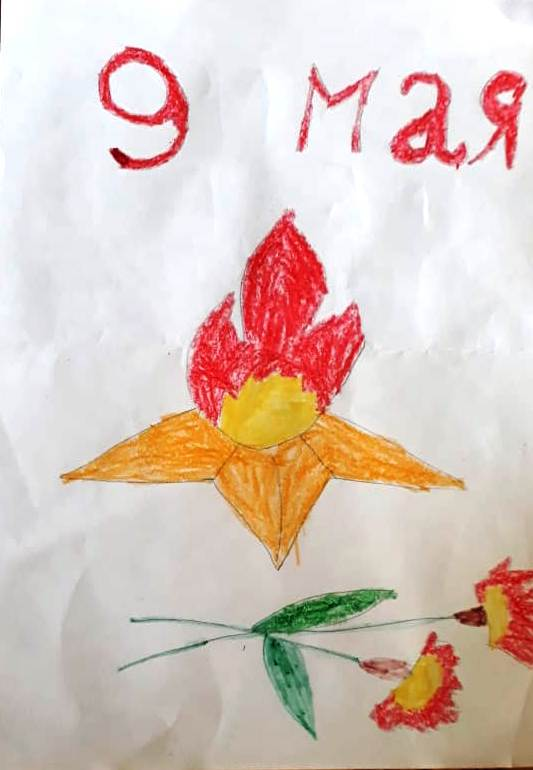 9 мая